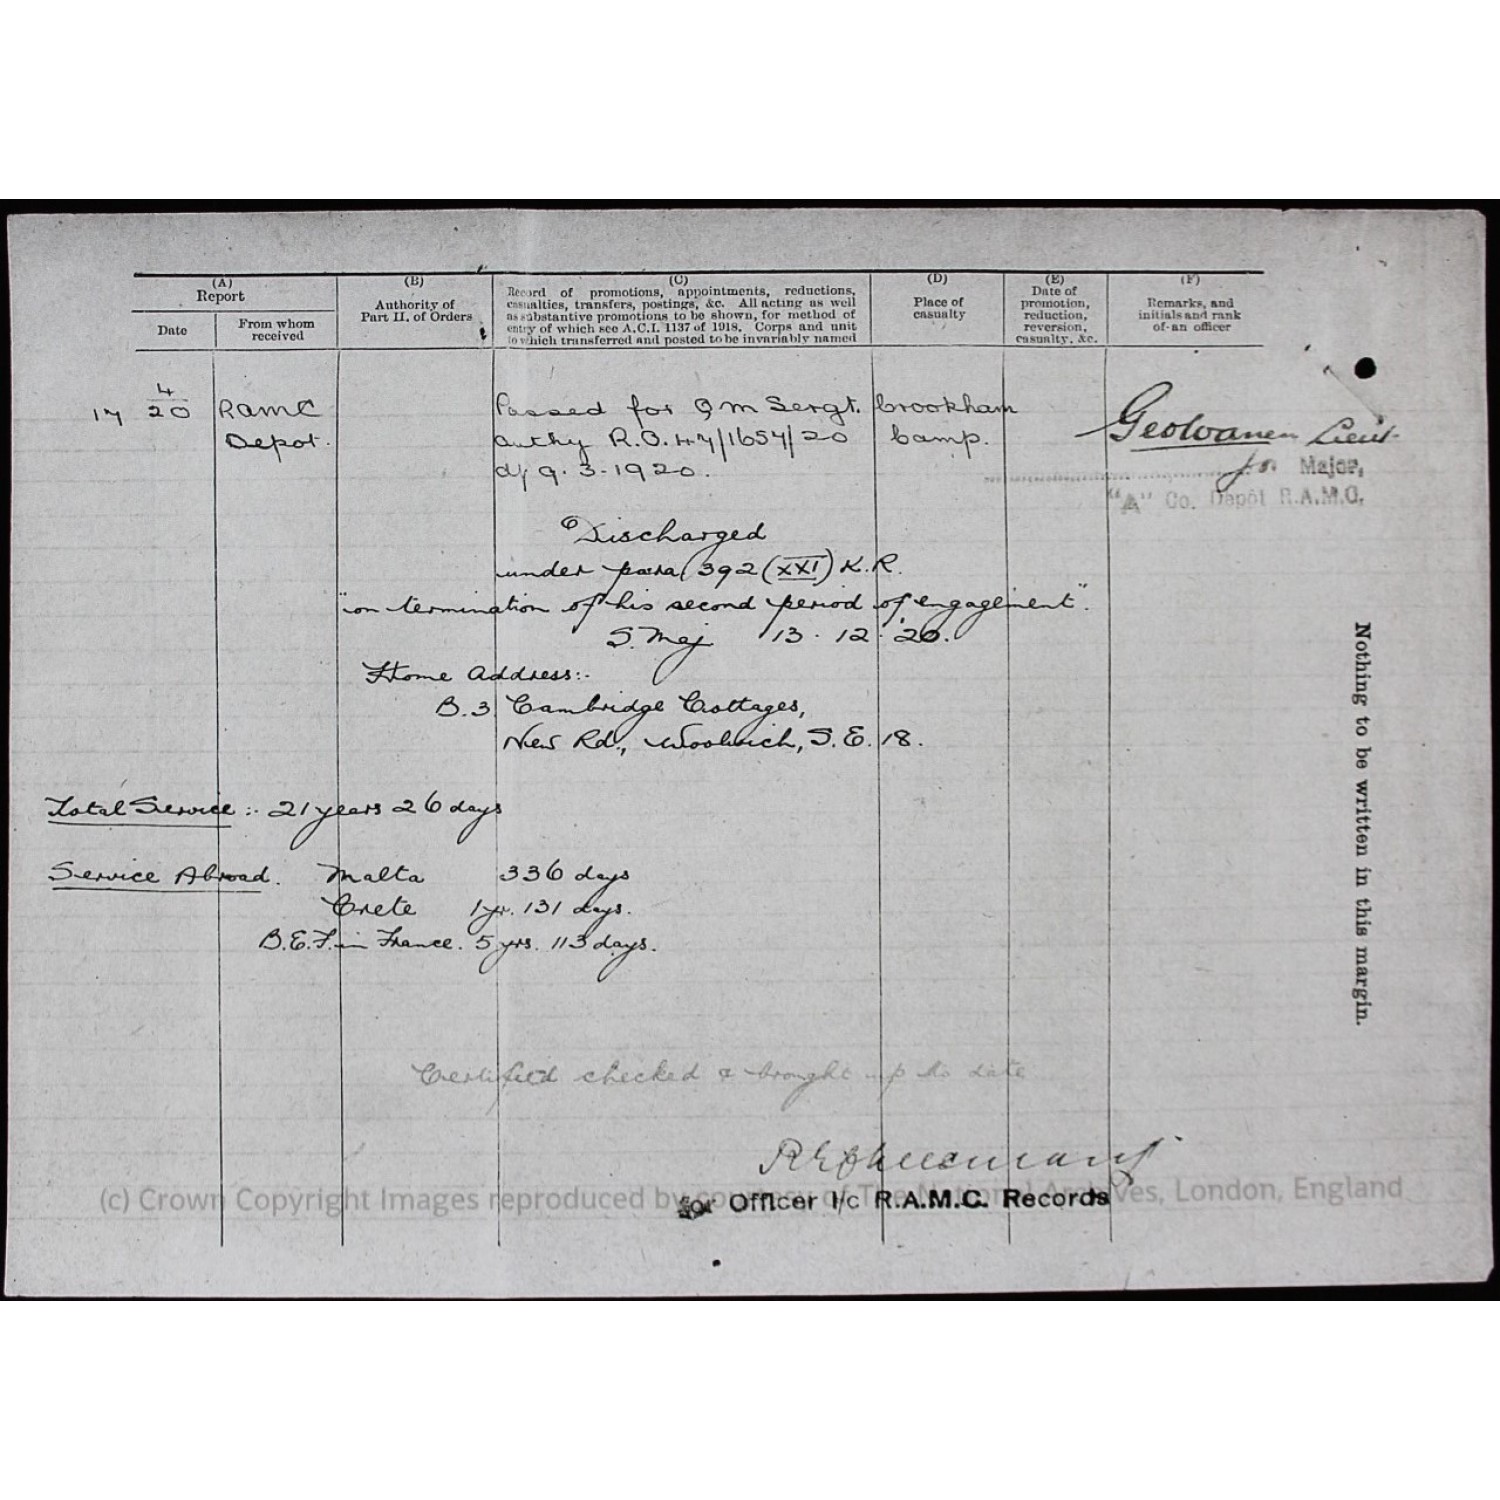 (A)
Report
Date
From whom
received
(B)
Authority of
Part II. of Orders
(C)
Record of promotions, appointments, reductions,
casualties, transfers, postings, &c. All acting as well
as substantive promotions to be shown, for method of
entry of which see A.C.I. 1137 of 1918. Corps and unit
to which transferred and posted to be invariably named
(D)
Place of
casualty
(E)
Date of
promotion,
reduction,
reversion,
casualty, &c.
(F)
Remarks, and
initials and rank
of an officer
17 4/20 RAMC
Depot.
Passed for Q M Sergt.
authy R.O. 47/1657/20
d/ 9.3.1920.
Crookham
Camp.
Lieut
for Major,
"A" Co. Depôt R.A.M.C.
Discharged
under para 392 (XXI) K.R.
"on termination of his second period of engagement".
S. Maj 13.12.20.
Home Address:-
B.3 Cambridge Cottages,
New Rd., Woolwich, S.E.18.
Total Service:- 21 years 26 days
Service Abroad. Malta 336 days
Crete 1 yr. 131 days.
B.E.F. in France. 5 yrs. 113 days.
Certified checked & brought up to date
for Officer I/c R.A.M.C. Records
(c) Crown Copyright Images reproduced by courtesy of The National Archives, London, England
Nothing to be written in this margin.